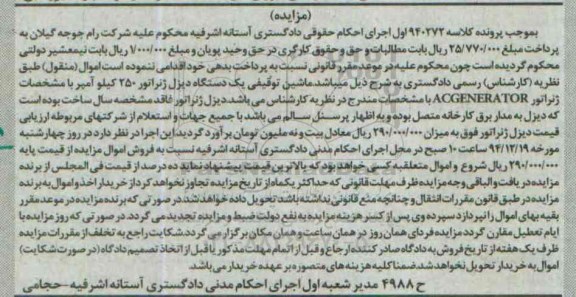 (مزایده)
بموجب پرونده کلاسه ۹۴۰۲۷۲ اول اجرای احکام حقوقی دادگستری آستانه اشرفیه محکوم علیه شرکت رام جوجه گیلان به
پرداخت مبلغ ۲۵/۷۷۰/۰۰۰ ریال بابت مطالبات و حق و حقوق کارگری در حق وحید پویان و مبلغ ۱/۰۰۰/۰۰۰ ریال بابت نیمعشیر دولتی
محکوم گردیده است چون محکوم علیه در موعد مقرر قانونی نسبت به پرداخت بدهی خود اقدامی ننموده است اموال (منقول) طبق
نظریه (کارشناس) رسمی دادگستری به شرح ذیل میباشد. ماشین توقیفی یک دستگاه دیزل ژنراتور ۲۵۰ کیلو آمپر با مشخصات
ژنراتور ACGENERATOR با مشخصات مندرج در نظریه کارشناس می باشد. دیزل ژنراتور فاقد مشخصه سال ساخت بوده است
که دیزل به مدار برق کارخانه متصل بوده و به اظهار پرسنل سالم می باشد با جمیع جهات و استعلام از شرکتهای مربوطه ارزیابی
قیمت دیزل ژنراتور فوق به میزان ۲۹۰/۰۰۰/۰۰۰ ریال معادل بیست و نه ملیون تومان برآورد گردید این اجرا در نظر دارد در روز چهارشنبه
مورخه ۹۴/۱۲/۱۹ ساعت ۱۰ صبح در محل اجرای احکام مدنی دادگستری آستانه اشرفیه نسبت به فروش اموال مزایده از قیمت پایه
۲۹۰/۰۰۰/۰۰۰ ریال شروع و اموال متعلق به کسی خواهد بود که بالاترین قیمت پیشنهاد نماید ده درصد از قیمت فی المجلس از برنده
مزایده دریافت والباقی وجه مزایده ظرف مهلت قانونی که حداکثر یکماه از تاریخ مزایده تجاوز نخواهد کرد از خریدار اخذ و اموال به برنده
مزایده در طبق قانون مقررات انتقال و چنانچه منع قانونی نداشته باشد تحویل داده خواهد شد در صورتی که برنده مزایده در موعد مقرر
بقیه بهای اموال را نپردازد سپرده وی پس از کسر هزینه مزایده به نفع دولت ضبط و مزایده تجدید می گردد. در صورتی که روز مزایده با
ایام تعطیل مقارن گردد مزایده فردای همان روز در همان ساعت و همان مکان برگزار می گردد شکایت راجع به تخلف از مقررات مزایده
ظرف یک هفته از تاریخ فروش به دادگاه صادر کننده ارجاع و قبل از اتمام مهلت مذکور یا قبل از اتخاذ تصمیم دادگاه (در صورت شکایت)
اموال به خریدار تحویل نخواهد شد. ضمنا کلیه هزینه های متصوره بر عهده خریدار می باشد.
ح ۴۹۸۸ مدیر شعبه اول اجرای احکام مدنی دادگستری آستانه اشرفیه - حجامی